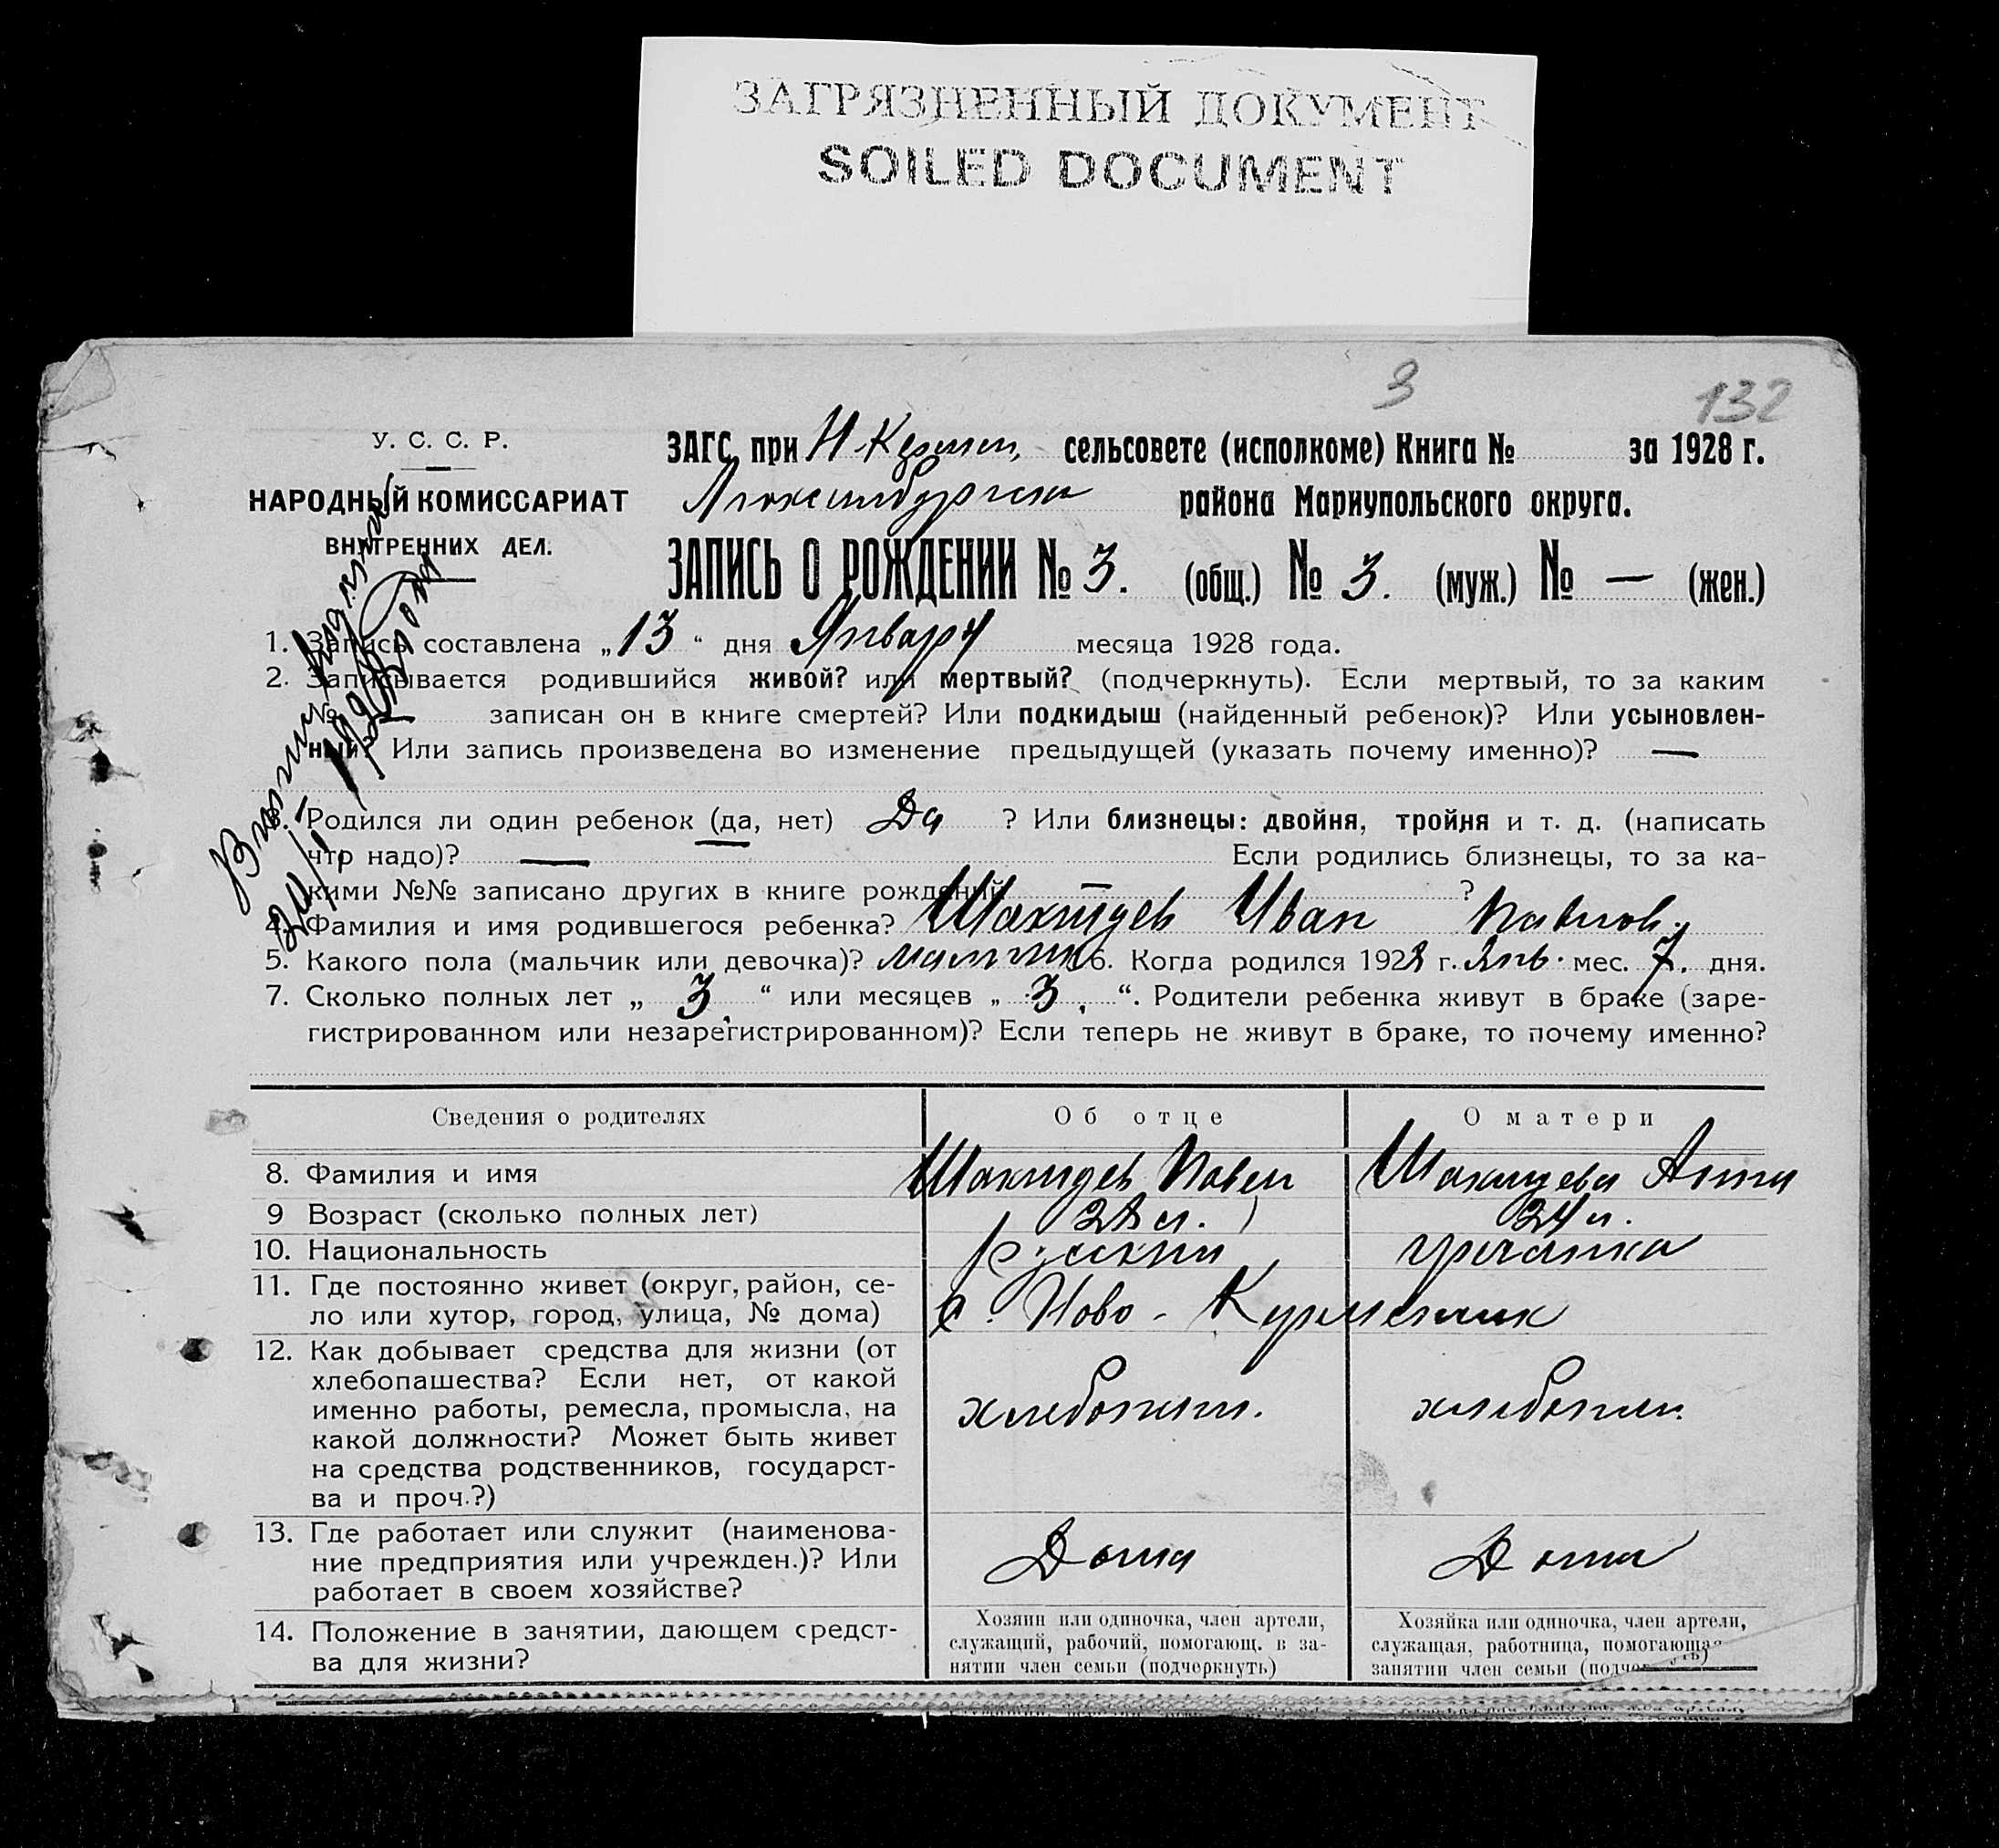 ЗАГРЯЗНЕННЫЙ ДОКУМЕНТ
SOILED DOCUMENT
3
132
У. С. С. Р.
НАРОДНЫЙ КОМИССАРИАТ
ВНУТРЕННИХ ДЕЛ.
ЗАГС при сельсовете (исполкоме) Книга № за 1928 г.
района Мариупольского округа.
ЗАПИСЬ О РОЖДЕНИИ № 3. (общ.) № 3. (муж.) № — (жен.)
1. Запись составлена „ 13 “ дня Января месяца 1928 года.
2. Записывается родившийся живой? или мертвый? (подчеркнуть). Если мертвый, то за каким
№ записан он в книге смертей? Или подкидыш (найденный ребенок)? Или усыновлен-
ный? Или запись произведена во изменение предыдущей (указать почему именно)? —
Родился ли один ребенок (да, нет) Да ? Или близнецы: двойня, тройня и т. д. (написать
что надо)? — Если родились близнецы, то за ка-
кими №№ записано других в книге рождений — ?
4. Фамилия и имя родившегося ребенка? Иван Павлов.
5. Какого пола (мальчик или девочка)? мальчик 6. Когда родился 1928 г. Янв. мес. 7. дня.
7. Сколько полных лет „ 3 “ или месяцев „ 3 “. Родители ребенка живут в браке (заре-
гистрированном или незарегистрированном)? Если теперь не живут в браке, то почему именно?
Сведения о родителях Об отце О матери
8. Фамилия и имя Павел Анна
9 Возраст (сколько полных лет) 28 л. 24 л.
10. Национальность русский гречанка
11. Где постоянно живет (округ, район, се-
ло или хутор, город, улица, № дома) с. Ново-Курменчик
12. Как добывает средства для жизни (от
хлебопашества? Если нет, от какой
именно работы, ремесла, промысла, на
какой должности? Может быть живет
на средства родственников, государст-
ва и проч.?)
хлебопаш.
13. Где работает или служит (наименова-
ние предприятия или учрежден.)? Или
работает в своем хозяйстве?
Дома Дома
14. Положение в занятии, дающем средст-
ва для жизни?
Хозяин или одиночка, член артели,
служащий, рабочий, помогающ. в за-
нятии член семьи (подчеркнуть)
Хозяйка или одиночка, член артели,
служащая, работница, помогающая
занятии член семьи